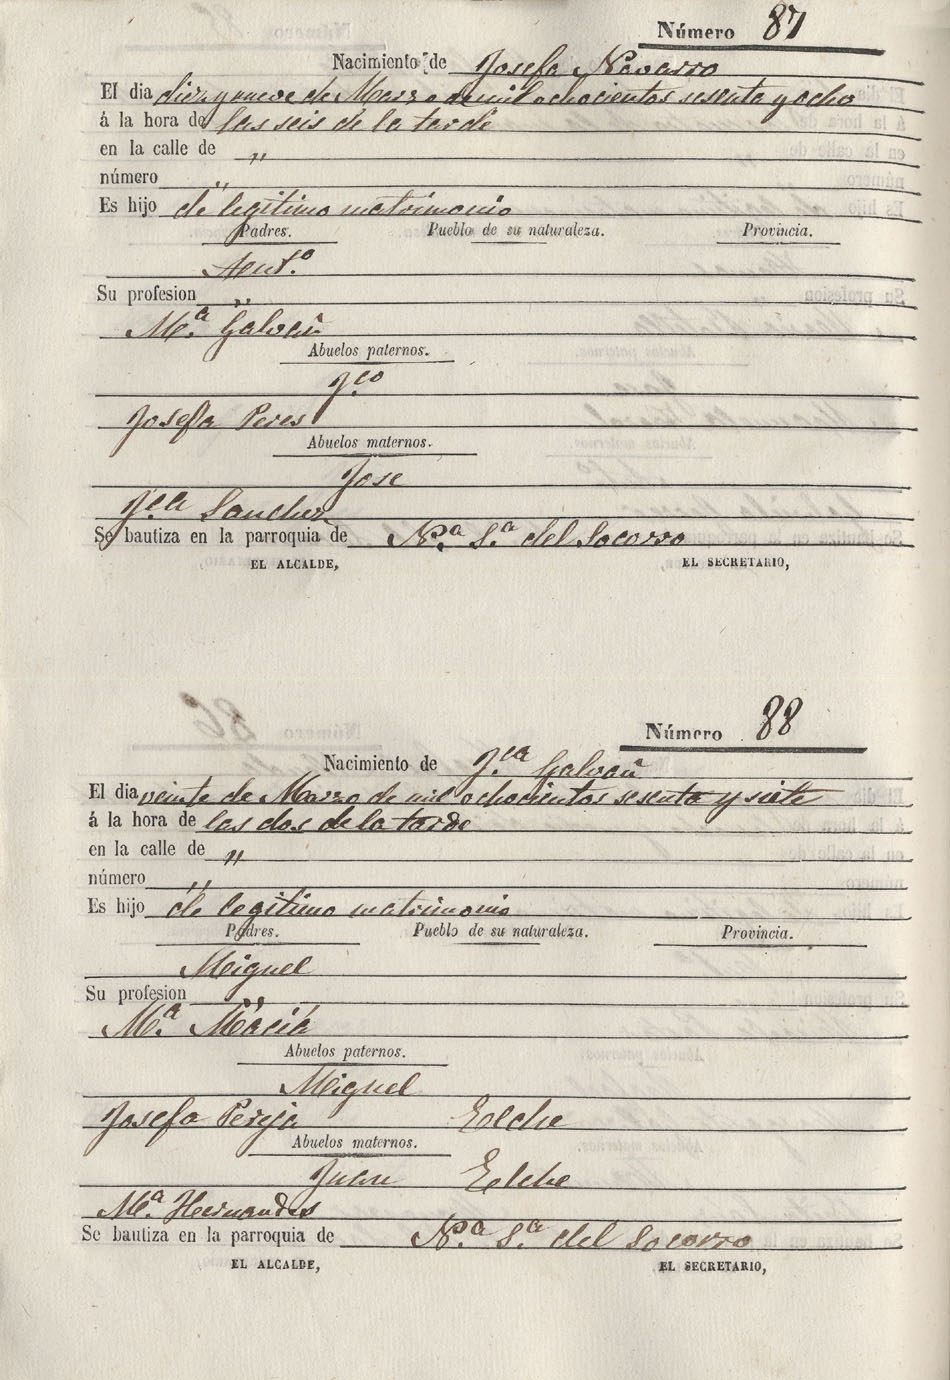 Número 87
Nacimiento de Josefa Navarro
El dia diez y nueve de Marzo de mil ochocientos sesenta y ocho
á la hora de las seis de la tarde
en la calle de "
número "
Es hijo de legitimo matrimonio
Padres. Pueblo de su naturaleza. Provincia.
Ant.º
Su profesion "
M.ª Galvañ
Abuelos paternos.
Fco
Josefa Peres
Abuelos maternos.
Jose
Fca Sanchez
Se bautiza en la parroquia de N.ª S.ª del Socorro
EL ALCALDE, EL SECRETARIO,
Número 88
Nacimiento de F.ca Galvañ
El dia veinte de Marzo de mil ochocientos sesenta y siete
á la hora de las dos de la tarde
en la calle de "
número "
Es hijo de legitimo matrimonio
Padres. Pueblo de su naturaleza. Provincia.
Miguel
Su profesion "
M.ª Maciá
Abuelos paternos.
Miguel
Josefa Pereja Elche
Abuelos maternos.
Juan Elche
M.ª Hernandes
Se bautiza en la parroquia de N.ª S.ª del Socorro
EL ALCALDE, EL SECRETARIO,